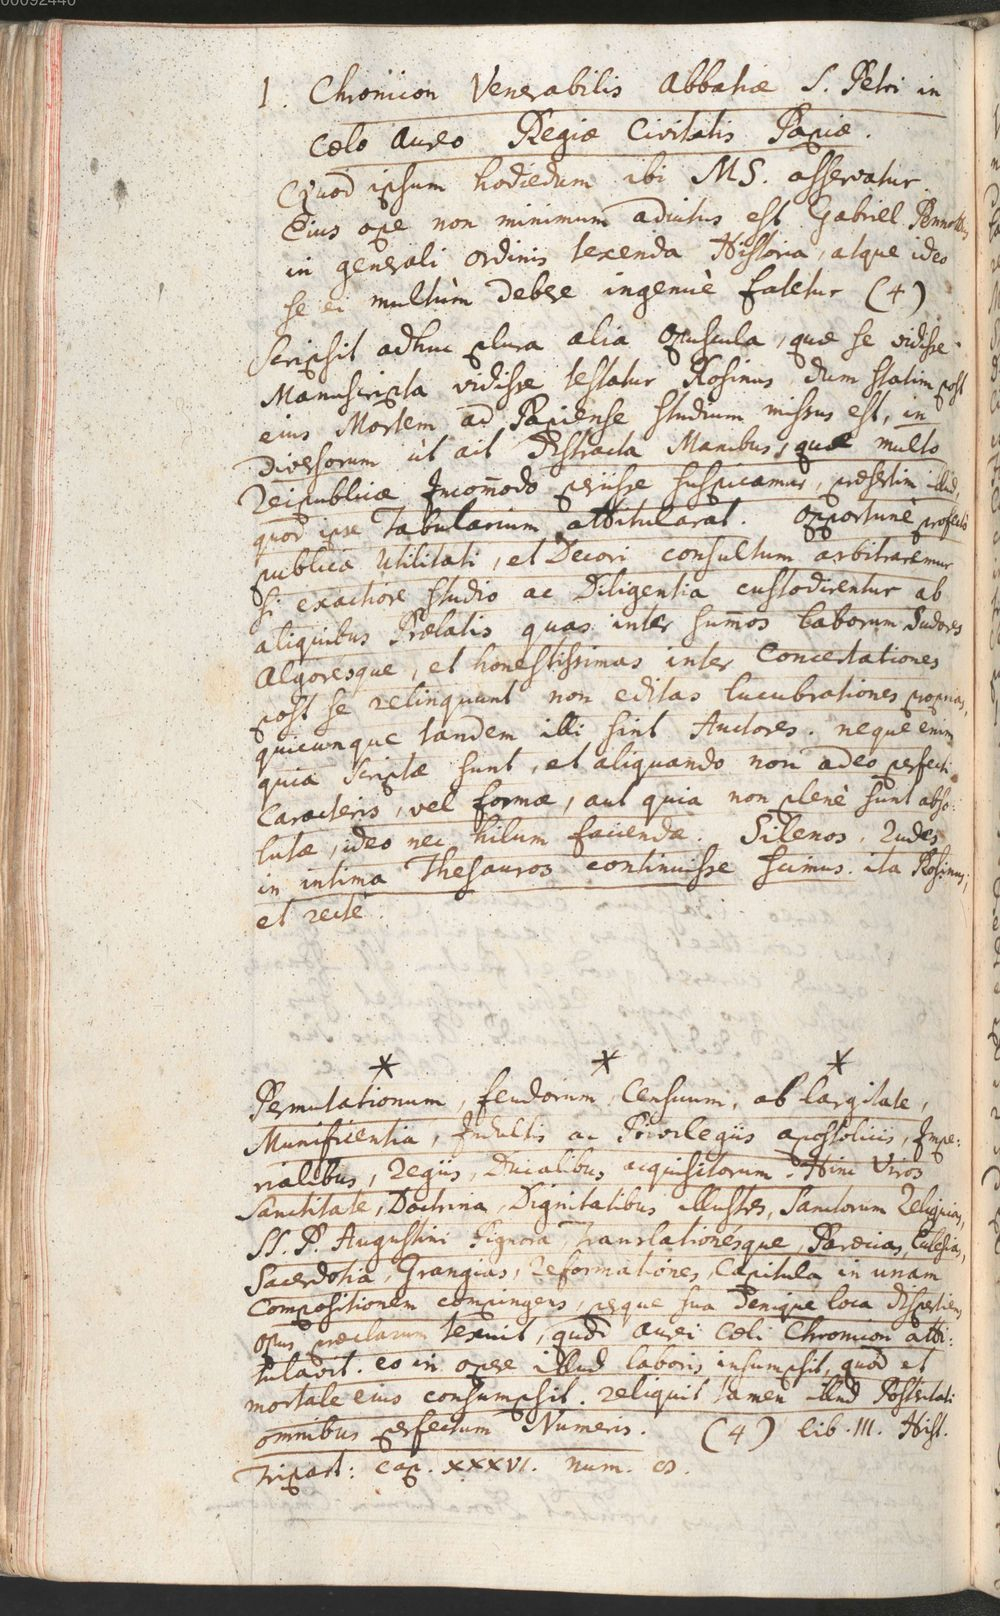 00092440
1. Chronicon Venerabilis Abbatiæ S. Petri in
Cœlo Aureo Regiæ Civitatis Papiæ.
Quod ipsum hodiedum ibi MS. asservatur.
Eius ope non minimum adiutus est Gabriel Pennottus
in generali ordinis texenda Historia, atque ideo
se ei multùm debere ingenuè fatetur (4)
Scripsit adhuc plura alia Opuscula, quæ se vidisse
Manuscripta vidisse testatur Rosinus, dum statim post
eius Mortem ad Papiense studium missus est, in
diversorum ùt ait Distracta Manibus, quæ multo
Reipublicæ Incom̄odo periisse suspicamur, præsertim illud,
quod ipse Tabularium attitularat. Opportunè profectò
publicæ Utilitati, et Decori consultum arbitraremur
si exactiore studio ac Diligentia custodirentur ab
aliquibus Prælatis quas inter sum̄os laborum Sudores
Algoresque, et honestissimas inter Concertationes
post se relinquunt non editas lucubrationes proprias,
quicunque tandem illi sint Auctores. neque enim
quia scriptæ sunt, et aliquando non adeo perfecti
Caracteris, vel formæ, aut quia non plenè sunt abso:
lutæ, ideo nec hilum faciendæ. Silenos, rudes
in intima Thesauros continuisse scimus. ita Rosinus,
et rectè.
* * *
Permutationum, feudorum, Censuum, ab largitate,
Munificentia, Indultis ac Privilegiis apostolicis, Impe:
rialibus, Regiis, Ducalibus acquisitorum. Hinc Viros
Sanctitate, Doctrina, Dignitatibus illustres, Sanctorum Reliquias,
SS. P. Augustini Pignora, Translationésque, Parœcias, Ecclesias,
Sacerdotia, Grangias, Reformationes, Capitula in unam
Compositionem compingens, perque sua Denique loca Dispertiens
opus præclarum texuit, quod aurei Cœli Chronicon atti:
tulavit. eo in opere illud laboris insumpsit, quod et
mortale eius consumpsit. reliquit tamen illud Posteritati
omnibus perfectum Numeris. (4) lib. III. Hist.
Tripart: cap. XXXVI. num.